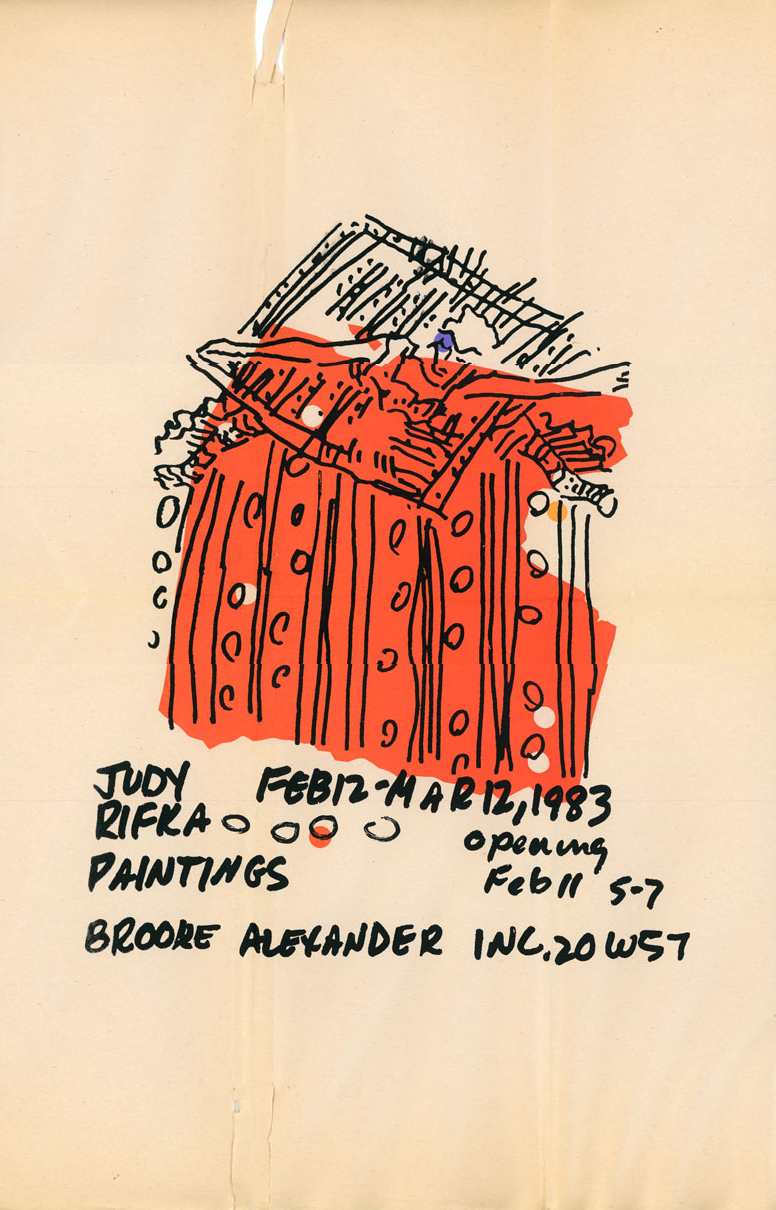 JUDY
RIFKA
PAINTINGS
FEB12-MAR12,1983
opening
Feb11 5-7
BROOKE ALEXANDER INC.20 W57